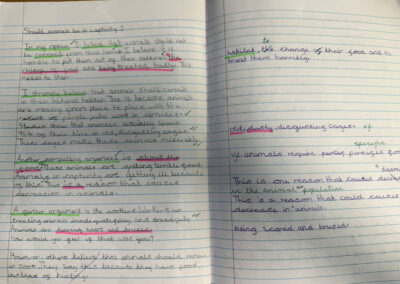 Should animals be in captivity?
In my opinion, I believe that animals should not
be removed from their homes. I believe it is
horrible to pull them out of their natural
change of food and being treated badly. This
needs to stop.
I strongly believe that animals should remain
in their natural habitat. This is because animals
are moving from place to place with the
people who work in circuses.
Studies show that animals usually spend
of their time in old, disgusting cages.
These cages make these animals miserable.
Another compelling argument is about the
food. These animals are eating horrible food.
Animals in captivity are getting ill because
of this. This is a reason that causes
decrease in animals.
A further argument is the workers. Workers are
treating animals inadequately and dreadfully.
Animals are having scars and bruises.
How would you feel if that was you?
However, others believe that animals should remain
in zoos. They say this because they have food,
instead of hunting.
habitat, the change of their food and to
treat them horribly.
old, dusty, disgusting cages. if
specific
if animals require
This is one reason that causes
in the animal population.
This is a reason that could cause
decrease in animals.
being scared and bruised